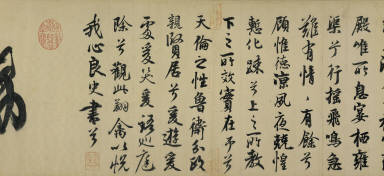 殿唯所息宴栖雍
渠兮行搖飛鳴急
難有情〻有餘兮
顧惟德凉夙夜兢惶
慙化踈兮上之所教
下之所效實在予兮
天倫之性魯衛分政
親賢居兮爰遊爰
處爰笑爰語巡庭
除兮觀此翔禽以悅
我心良史書兮